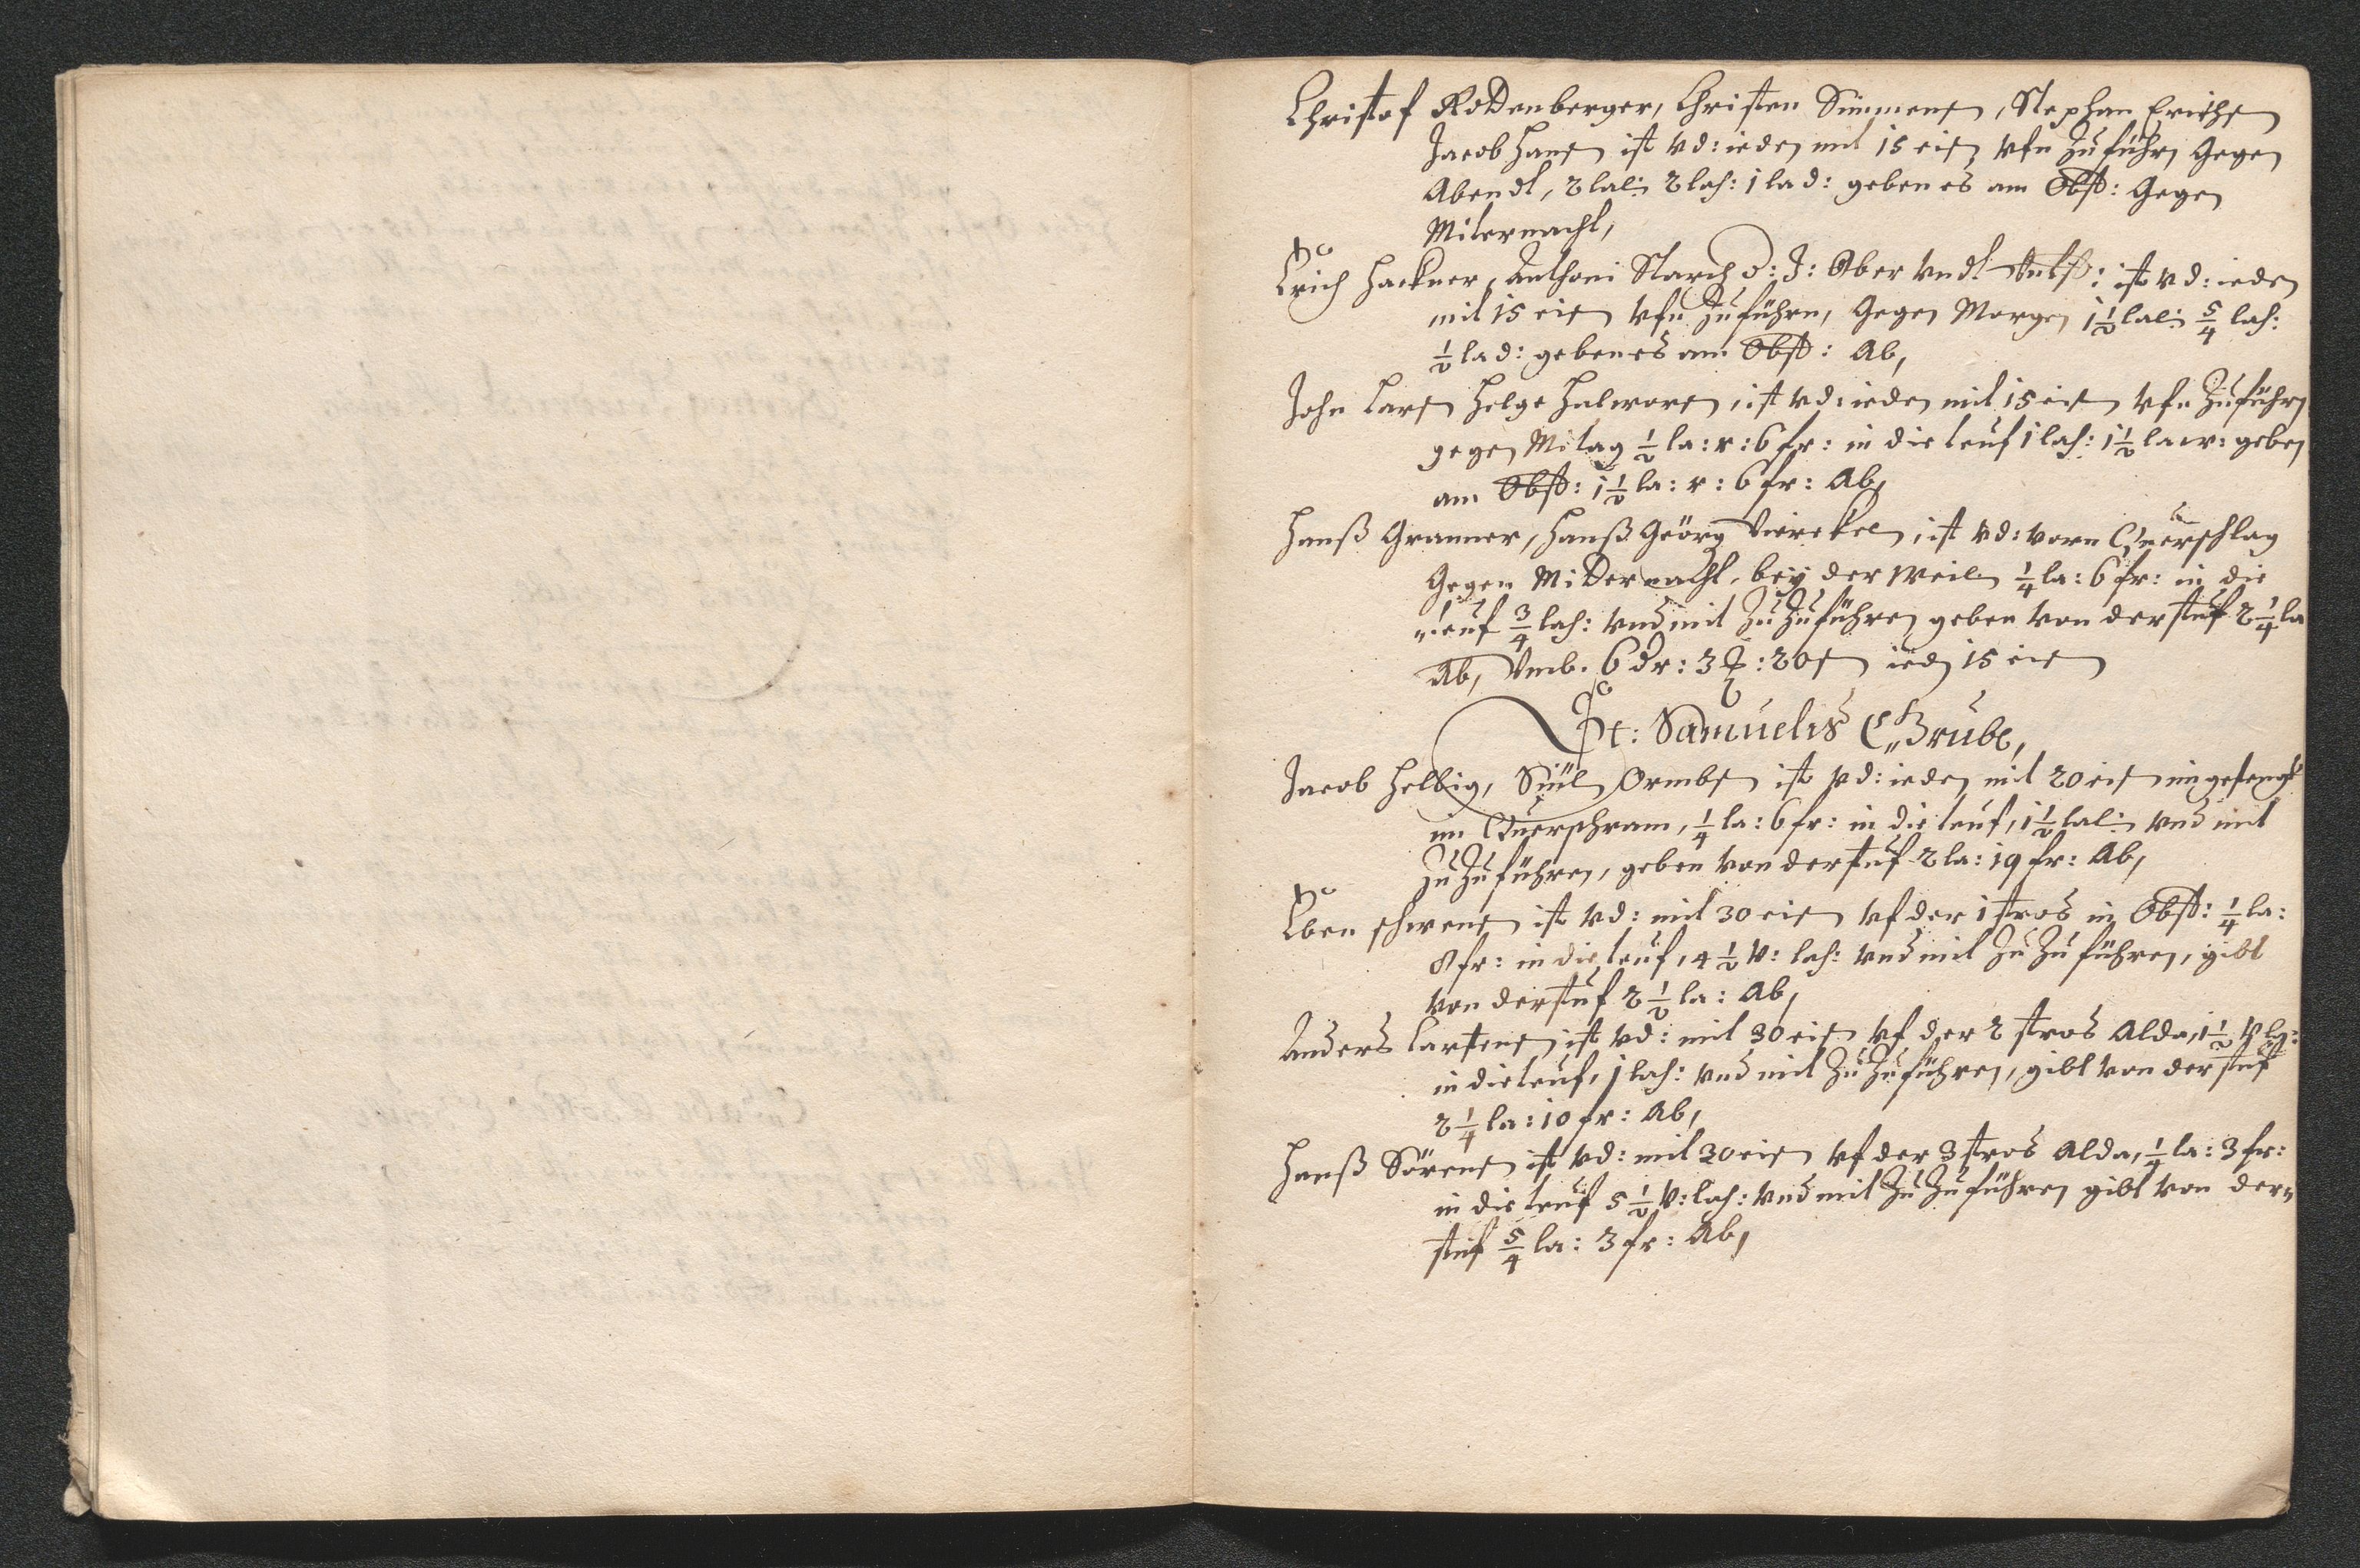 Christof Rodenberger, Christen Simmens, Stephan Erichs
Jacob Hans ist vd: ieden mit 15 eis vfn Zuführn Gegen
Abendt, 2 lal: 2 lach: 1 lad: geben es am Obst: Gegen
Miternacht,
Erich Hackner, Anthoni Starch d: J: Ober vndt ist vd: ieden
mit 15 eis vfn Zuführn, Gegen Morgen 1 1/2 lal: 5/4 lach:
1/2 lad: geben es am Obst: Ab,
John Lars Helge Halvors, ist vd: ieden mit 15 eis vfn Zuführn
gegen Mitag 1/2 la: r: 6 fr: in die teuf 1 lach: 1 1/2 law: geben
am Obst: 1 1/2 la: r: 6 fr: Ab,
Hanß Granner, Hanß Geörg Vierekel, ist vd: vorn Querschlag
Gegen Midernacht, bey der Weil 1/4 la: 6 fr: in die
teuf 3/4 lach: vnd mit Zu Zuführen geben von der stuf 2 1/4 la
Ab, Vmb. 6 dr: 3 : 20 s ied 15 eis
St: Samuelis Grube,
Jacob Helbig, Siul Ormbs ist vd: ieden mit 20 eis im gesengk
im Querschram, 1/4 la: 6 fr: in die teuf, 1 1/2 lal: vnd mit
Zu Zuführen, geben von der stuf 2 la: 19 fr: Ab,
Eben schwens ist vd: mit 30 eis vf der 1 stros in Obst: 1/4 la:
8 fr: in die teuf, 4 1/2 v: lach: vnd mit Zu Zuführen, gibt
von der stuf 2 1/2 la: Ab,
Anders Lartens ist vd: mit 30 eis vf der 2 stros Alda, 1 1/2 vlg:
in die teuf, 1 lach: vnd mit Zu Zuführen, gibt von der stuf
2 1/4 la: 10 fr: Ab,
Hanß Sörens ist vd: mit 30 eis vf der 3 stros Alda, 1/4 la: 3 fr:
in die teuf 5 1/2 v: lach: vnd mit Zu Zuführen gibt von der
stuf 5/4 la: 3 fr: Ab,